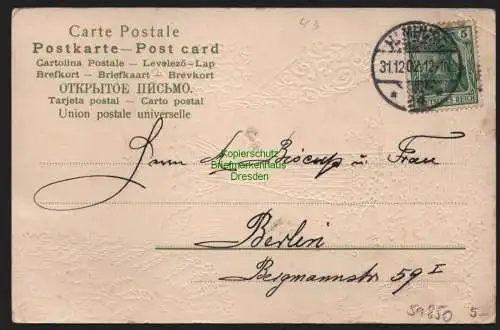 Carte Postale
Postkarte – Post card
Cartolina Postale – Levelező-Lap
Brefkort – Briefkaart – Brevkort
ОТКРЫТОЕ ПИСЬМО.
Tarjeta postal – Carto postal
Union postale universelle
43
5
31.12.02.12-1
DEUTSCHES REICH
Kopierschutz
Briefmarkenhaus
Dresden
Herrn M Biscup u Frau
Berlin
Bergmannstr. 59 I
59850
5-